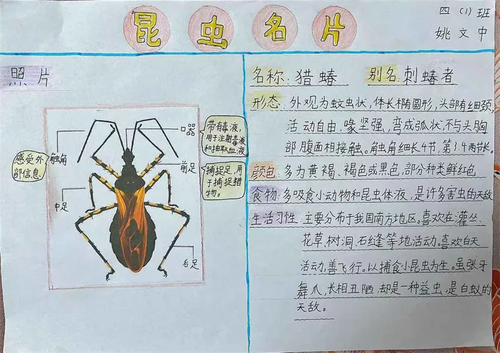 昆虫名片
四(1)班
姚文中
照片
口器
带有毒液,
用于注射毒液
和抽取血液
感受外
部信息。
触角
前足
捕捉足,用
于捕捉猎
物。
中足
后足
名称:猎蝽 别名刺蝽者
形态:外观为蚊虫状,体长椭圆形,头部有细颈,
活动自由。喙坚强,弯成弧状,不与头胸
部腹面相接触。触角细长4节,第3、4两节长
颜色:多为黄褐、褐色或黑色,部分种类鲜红色
食物:多吸食小动物和昆虫体液,是许多害虫的天敌
生活习性:主要分布于我国南方地区,喜欢在灌丛、
花草、树洞、石缝等地活动,喜欢白天
活动,善飞行。以捕食小昆虫为生。虽张牙
舞爪,长相丑陋,却是一种益虫,是白蚁的
天敌。